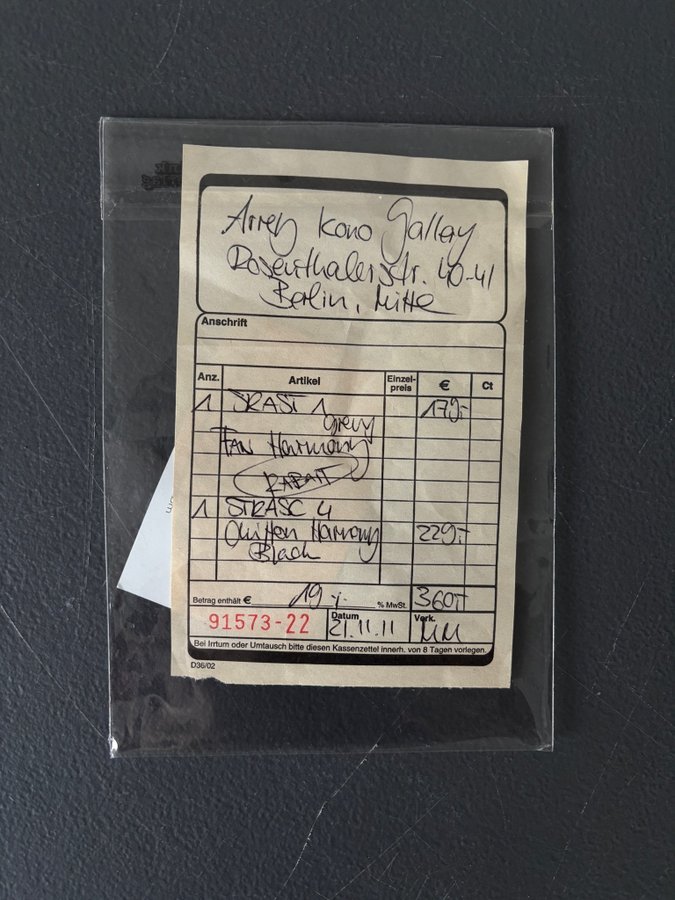 Arrey Kono Gallay
Rosenthalerstr. 40-41
Berlin, Mitte
Anschrift
Anz. Artikel Einzel-preis € Ct
1 SRAST 1 179,-
grey
FAN Harmony
RABATT
1 STRASC 4
Harmony 229,-
Black
Betrag enthält € 19 % MwSt. 360,-
91573-22 Datum 21.11.11 Verk. MM
Bei Irrtum oder Umtausch bitte diesen Kassenzettel innerh. von 8 Tagen vorlegen.
D36/02